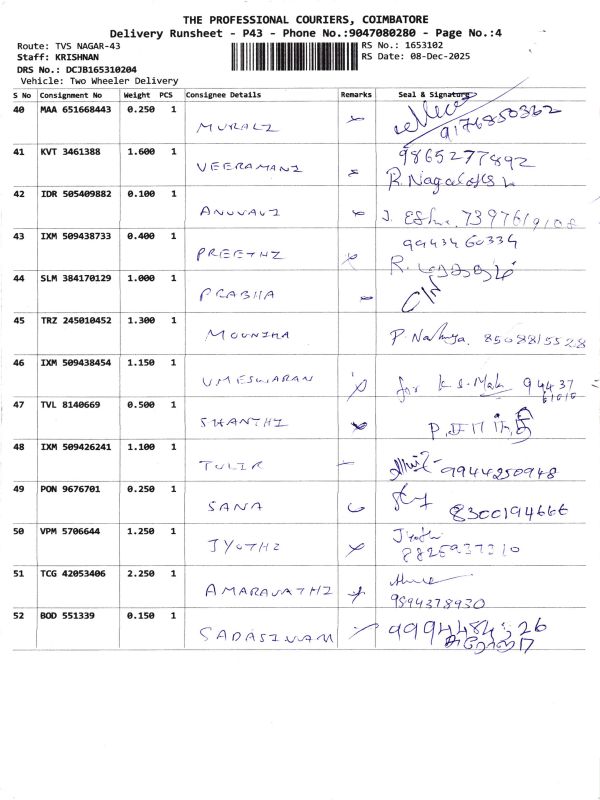 THE PROFESSIONAL COURIERS, COIMBATORE
Delivery Runsheet - P43 - Phone No.:9047080280 - Page No.:4
Route: TVS NAGAR-43
RS No.: 1653102
Staff: KRISHNAN
RS Date: 08-Dec-2025
DRS No.: DCJB165310204
Vehicle: Two Wheeler Delivery
S No Consignment No Weight PCS Consignee Details Remarks Seal & Signature
40 MAA 651668443 0.250 1 MURALI 9176850362
41 KVT 3461388 1.600 1 VEERAMANI 9865277892
42 IDR 505409882 0.100 1 J.
43 IXM 509438733 0.400 1 PREETHI 9943460334
R.
44 SLM 384170129 1.000 1 PRABHA
45 TRZ 245010452 1.300 1 MOUNIKA P. 8508815528
46 IXM 509438454 1.150 1 UMESWARAN for K.S. 94437
47 TVL 8140669 0.500 1 SHANTHI
48 IXM 509426241 1.100 1 TULIR 9944250948
49 PON 9676701 0.250 1 SANA 8300194666
50 VPM 5706644 1.250 1 JYOTHI Jyothi
51 TCG 42053406 2.250 1 AMARAVATHI 9894378930
52 BOD 551339 0.150 1 SADASIVAM